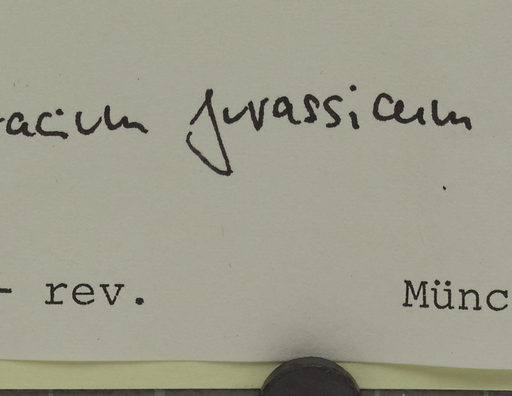 acium jurassicum
- rev. Münc